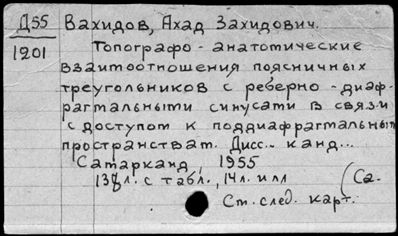 Д55 Вахидов, Ахад Захидович.
1201
Топографо-анатомические
взаимоотношения поясничных
треугольников с реберно-диаф-
рагмальными синусами в связи
с доступом к поддиафрагмальным
пространствам. Дисс... канд...
Самарканд, 1955
138л. с табл., 14л. илл
(Са.
Ст. след. карт.